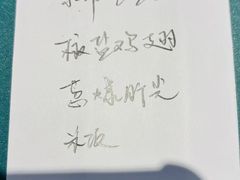 椒盐鸡翅
葱爆肝尖
米饭